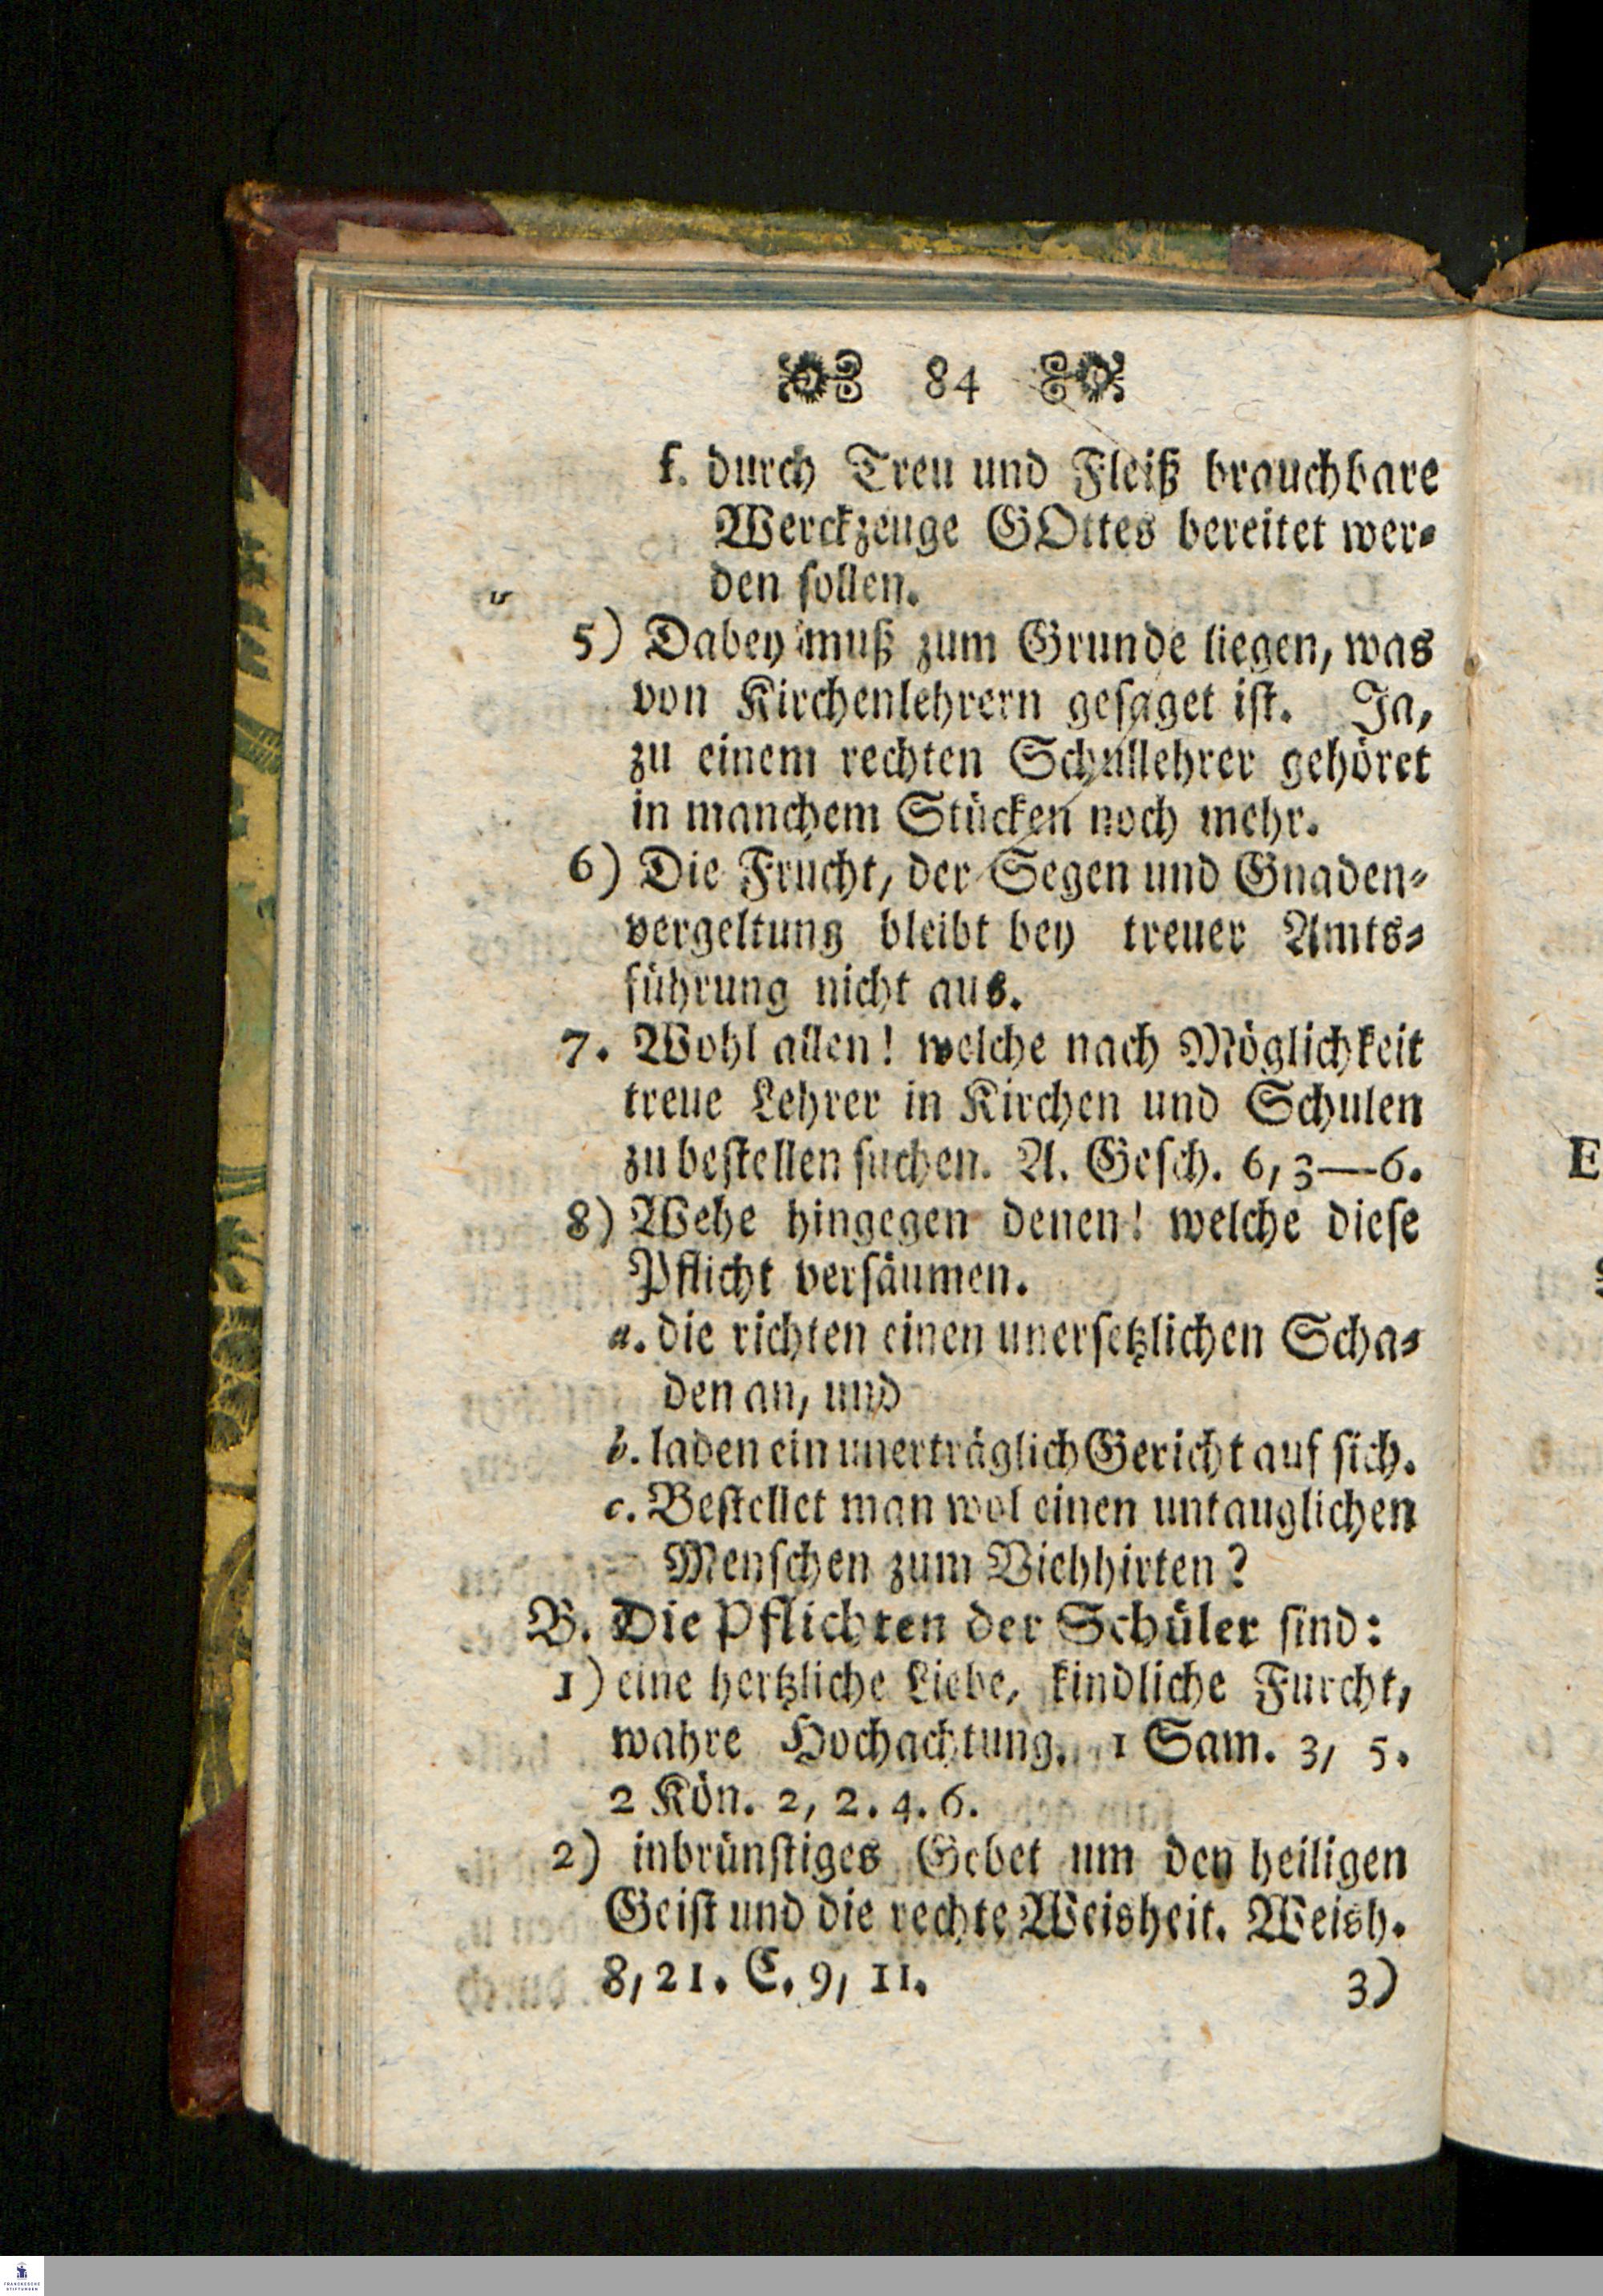 84
f. durch Treu und Fleiß brauchbare
Werckzeuge GOttes bereitet wer⸗
den sollen.
5) Dabey muß zum Grunde liegen, was
von Kirchenlehrern gesaget ist. Ja,
zu einem rechten Schullehrer gehöret
in manchem Stücken noch mehr.
6) Die Frucht, der Segen und Gnaden⸗
vergeltung bleibt bey treuer Amts⸗
führung nicht aus.
7. Wohl allen! welche nach Möglichkeit
treue Lehrer in Kirchen und Schulen
zu bestellen suchen. A. Gesch. 6, 3—6.
8) Wehe hingegen denen! welche diese
Pflicht versäumen.
a. die richten einen unersetzlichen Scha⸗
den an, und
b. laden ein unerträglich Gericht auf sich.
c. Bestellet man wol einen untauglichen
Menschen zum Viehhirten?
B. Die Pflichten der Schüler sind:
1) eine hertzliche Liebe, kindliche Furcht,
wahre Hochachtung. 1 Sam. 3, 5.
2 Kön. 2, 2. 4. 6.
2) inbrünstiges Gebet um den heiligen
Geist und die rechte Weisheit. Weish.
8, 21. C. 9, 11.
3)
E
FRANCKESCHE
STIFTUNGEN